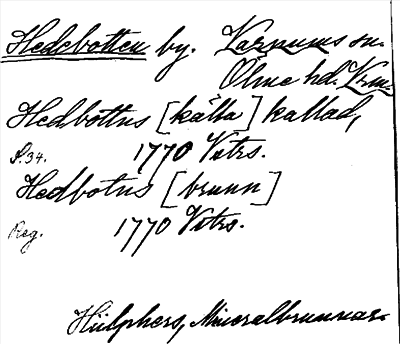 Hedebotten by. Varnums sn.
Ölme hd. Vrm.
Hedbottns [källa] kallad,
S. 34. 1770 Vitrs.
Hedbotns [brunn]
Reg. 1770 Vitrs.
Hülphers, Mineralbrunnar.